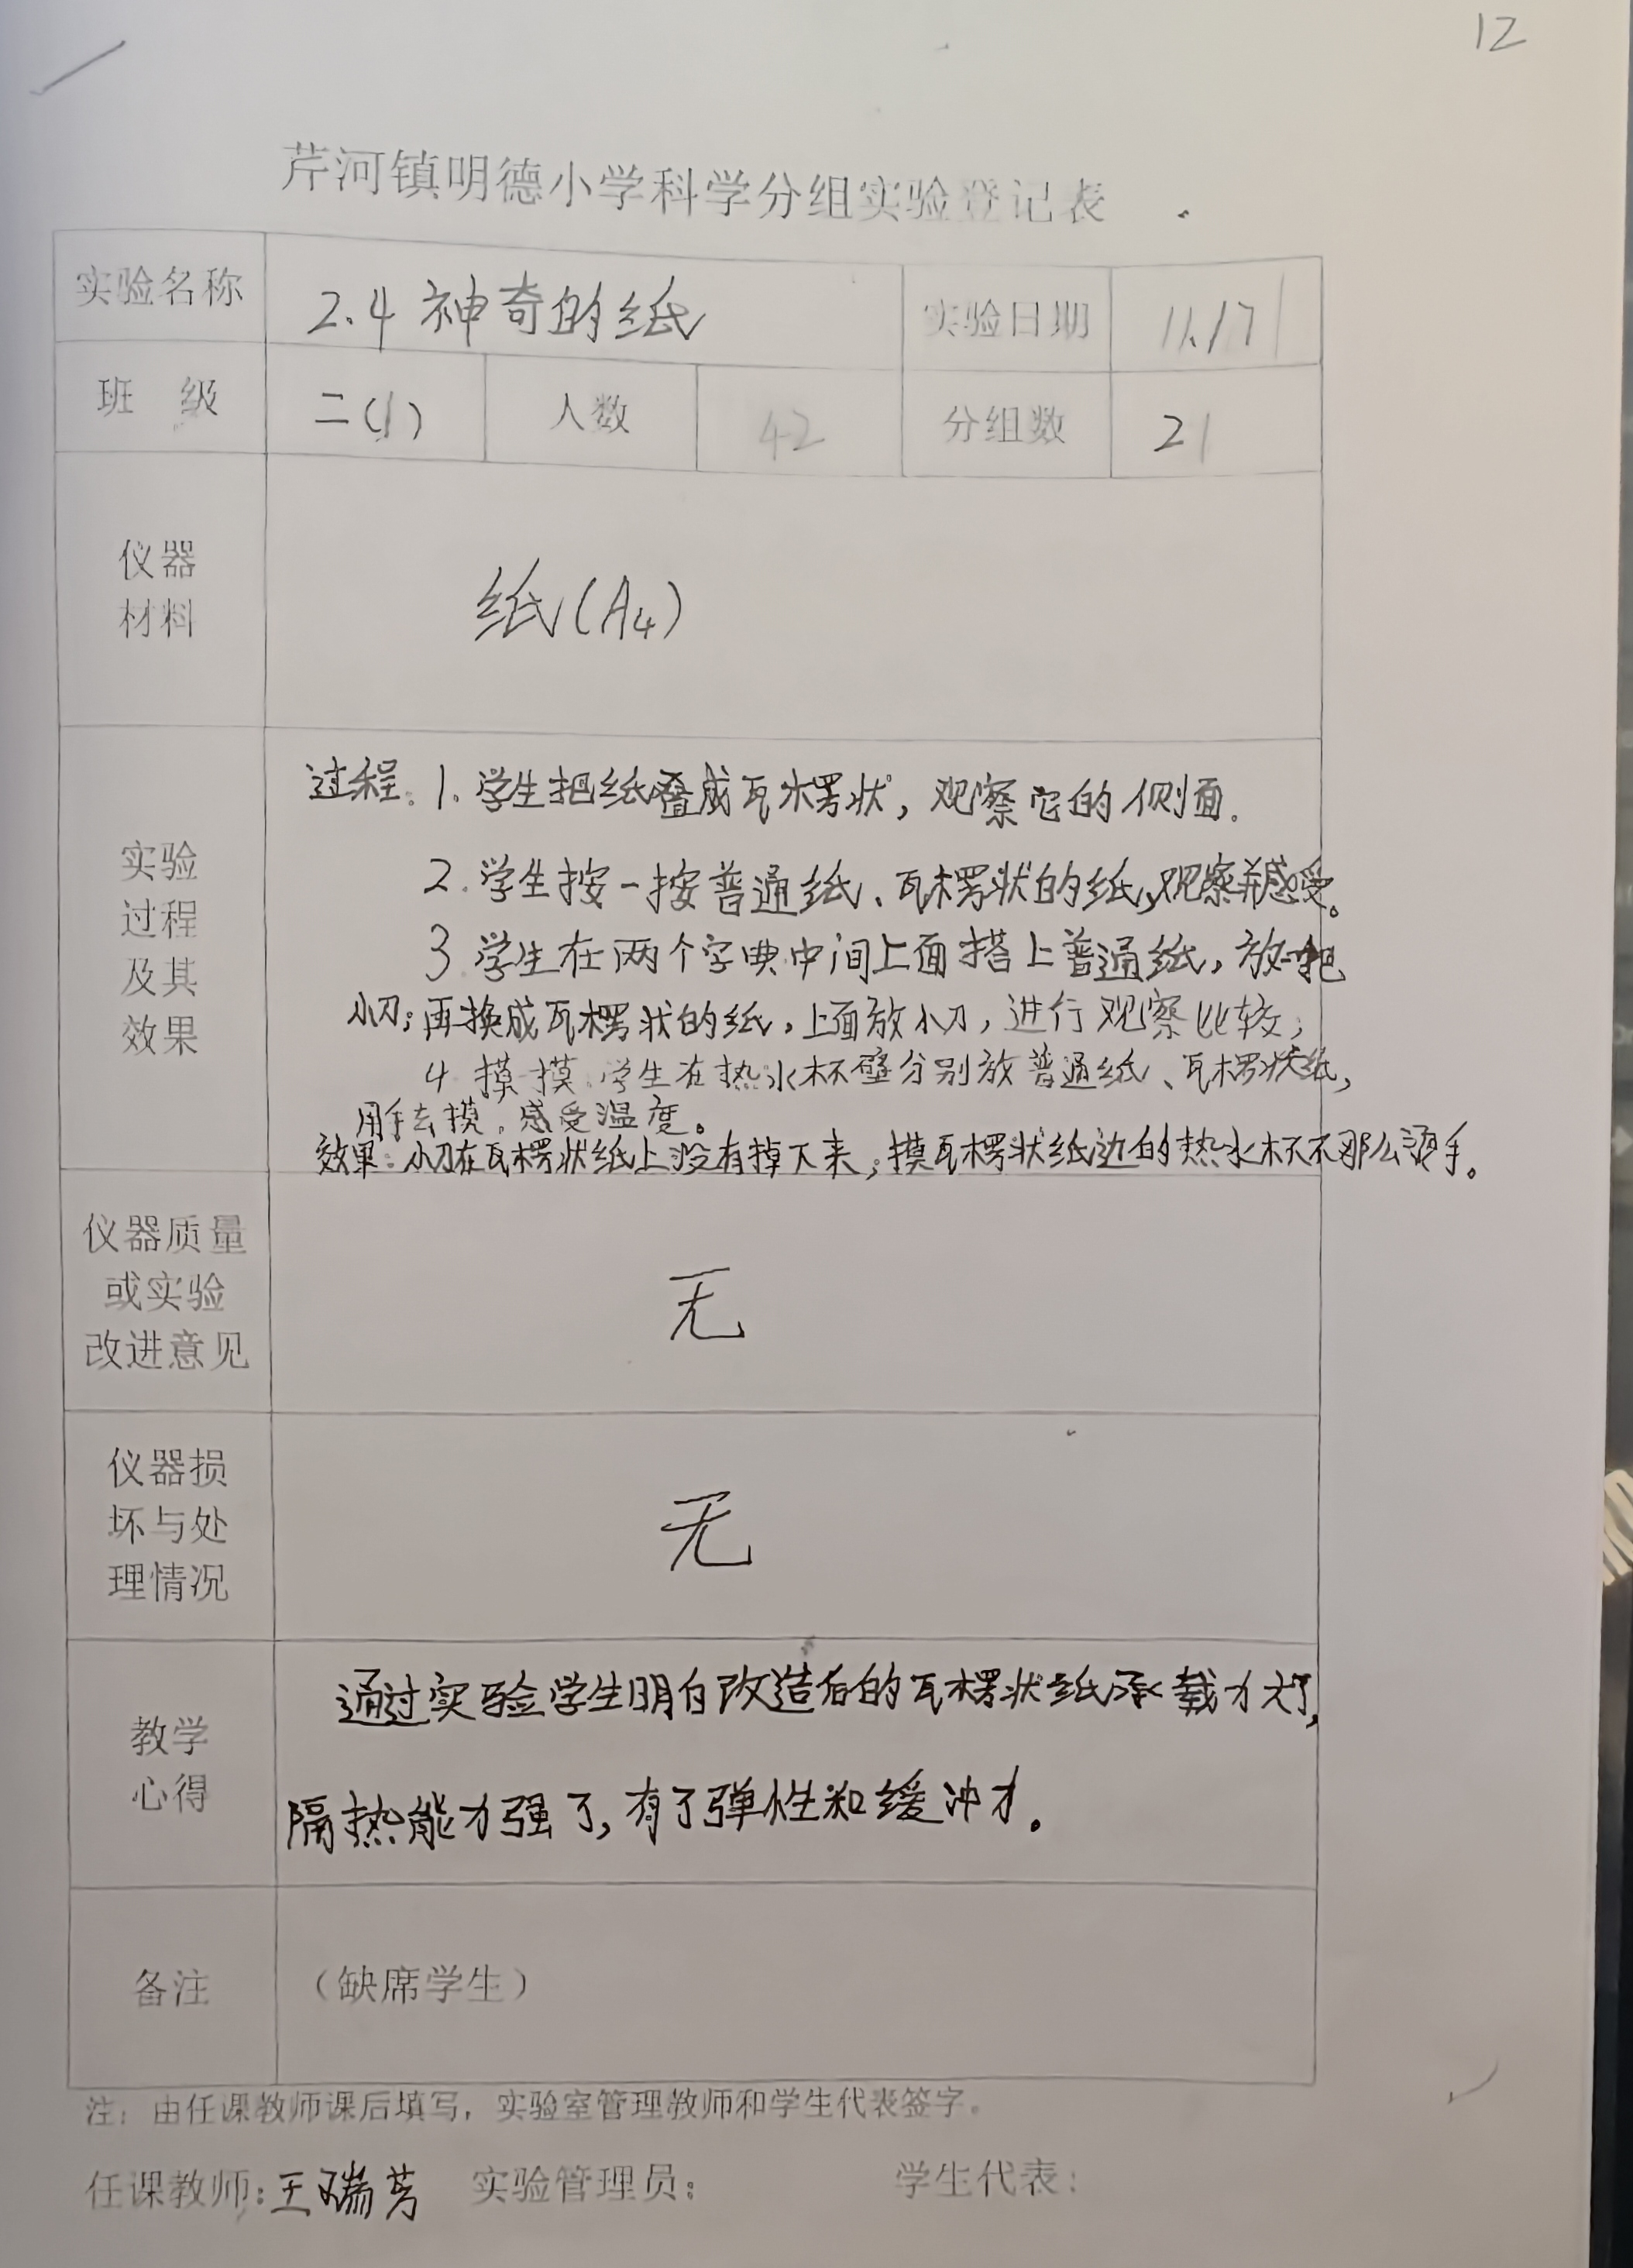 12
芹河镇明德小学科学分组实验登记表
实验名称 2.4 神奇的纸 实验日期 11.17
班 级 二(1) 人数 42 分组数 21
仪器
材料
纸(A4)
实验
过程
及其
效果
过程:1.学生把纸叠成瓦楞状,观察它的侧面.
2.学生按一按普通纸、瓦楞状的纸,观察并感受。
3.学生在两个字典中间上面搭上普通纸,放一把
小刀;再换成瓦楞状的纸,上面放小刀,进行观察比较;
4.摸一摸:学生在热水杯壁分别放普通纸、瓦楞状纸,
用手去摸,感受温度。
效果:小刀在瓦楞状纸上没有掉下来;摸瓦楞状纸边的热水杯不那么烫手。
仪器质量
或实验
改进意见
无
仪器损
坏与处
理情况
无
教学
心得
通过实验学生明白改造后的瓦楞状纸承载力大了,
隔热能力强了,有了弹性和缓冲力。
备注 (缺席学生)
注:由任课教师课后填写,实验室管理教师和学生代表签字。
任课教师:王瑞芳 实验管理员: 学生代表: